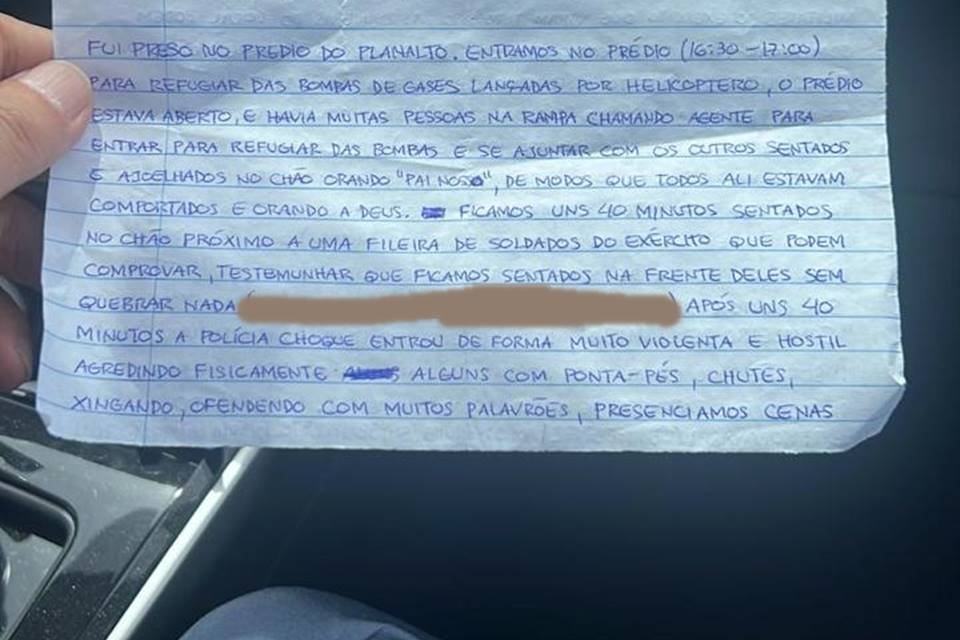 FUI PRESO NO PREDIO DO PLANALTO. ENTRAMOS NO PRÉDIO (16:30 - 17:00)
PARA REFUGIAR DAS BOMBAS DE GASES LANÇADAS POR HELICOPTERO, O PRÉDIO
ESTAVA ABERTO, E HAVIA MUITAS PESSOAS NA RAMPA CHAMANDO AGENTE PARA
ENTRAR PARA REFUGIAR DAS BOMBAS E SE AJUNTAR COM OS OUTROS SENTADOS
E AJOELHADOS NO CHÃO ORANDO "PAI NOSO", DE MODOS QUE TODOS ALI ESTAVAM
COMPORTADOS E ORANDO A DEUS. FICAMOS UNS 40 MINUTOS SENTADOS
NO CHÃO PRÓXIMO A UMA FILEIRA DE SOLDADOS DO EXÉRCITO QUE PODEM
COMPROVAR, TESTEMUNHAR QUE FICAMOS SENTADOS NA FRENTE DELES SEM
QUEBRAR NADA ( ) APÓS UNS 40
MINUTOS A POLÍCIA CHOQUE ENTROU DE FORMA MUITO VIOLENTA E HOSTIL
AGREDINDO FISICAMENTE ALGUNS COM PONTA-PÉS, CHUTES,
XINGANDO, OFENDENDO COM MUITOS PALAVRÕES, PRESENCIAMOS CENAS